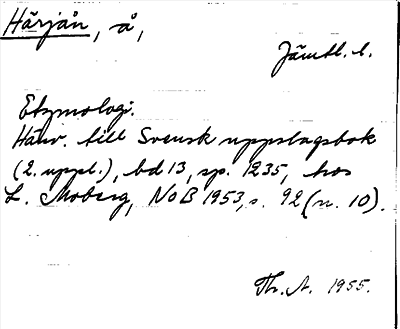 Härjån, å,
Jämtl. l.
Etymologi.
Hänv. till Svensk uppslagsbok
(2. uppl.), bd 13, sp. 1235, hos
L. Moberg, NoB 1953, s. 92 (n. 10).
Th. A. 1955.